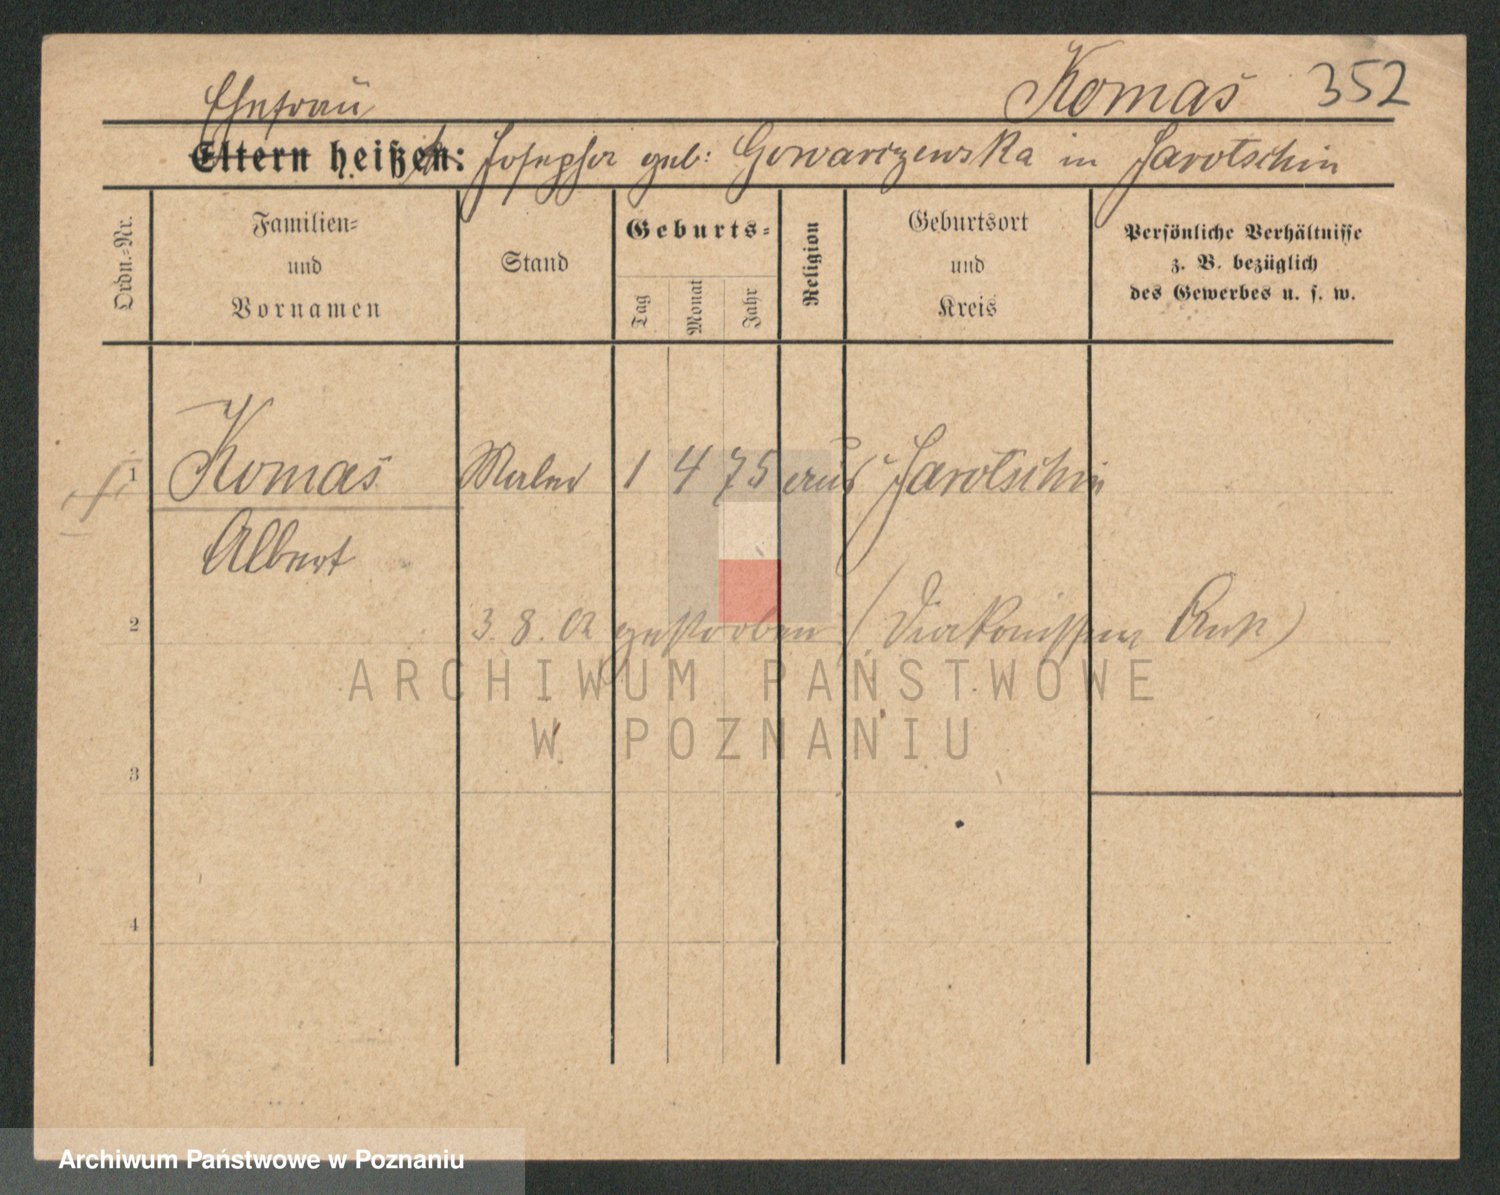 Ehefrau Komaś 352
Eltern heißen: Josepha geb: Gowarzewska in Jarotschin
Ordn.-Nr.
Familien-
und
Vornamen
Stand
Geburts-
Tag
Monat
Jahr
Religion
Geburtsort
und
Kreis
Persönliche Verhältnisse
z. B. bezüglich
des Gewerbes u. s. w.
1 Komaś Maler 1 4 75 aus Jarotschin
Albert
2 3. 8. 02 gestorben (Diakonissen
3
4
ARCHIWUM PAŃSTWOWE
W POZNANIU
Archiwum Państwowe w Poznaniu